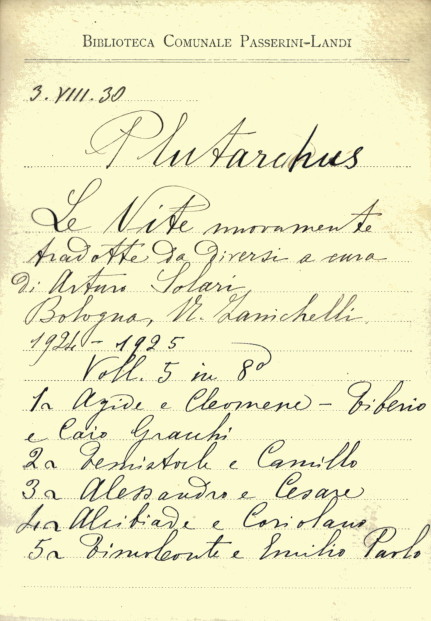 BIBLIOTECA COMUNALE PASSERINI-LANDI
3.VIII.30
Plutarchus
Le Vite nuovamente
tradotte da diversi a cura
di Arturo Solari
Bologna, N. Zanichelli
1924 - 1925
Voll. 5 in 8°
1a Agide e Cleomene - Tiberio
e Caio Gracchi
2a Temistocle e Camillo
3a Alessandro e Cesare
4a Alcibiade e Coriolano
5a Timoleonte e Emilio Paolo